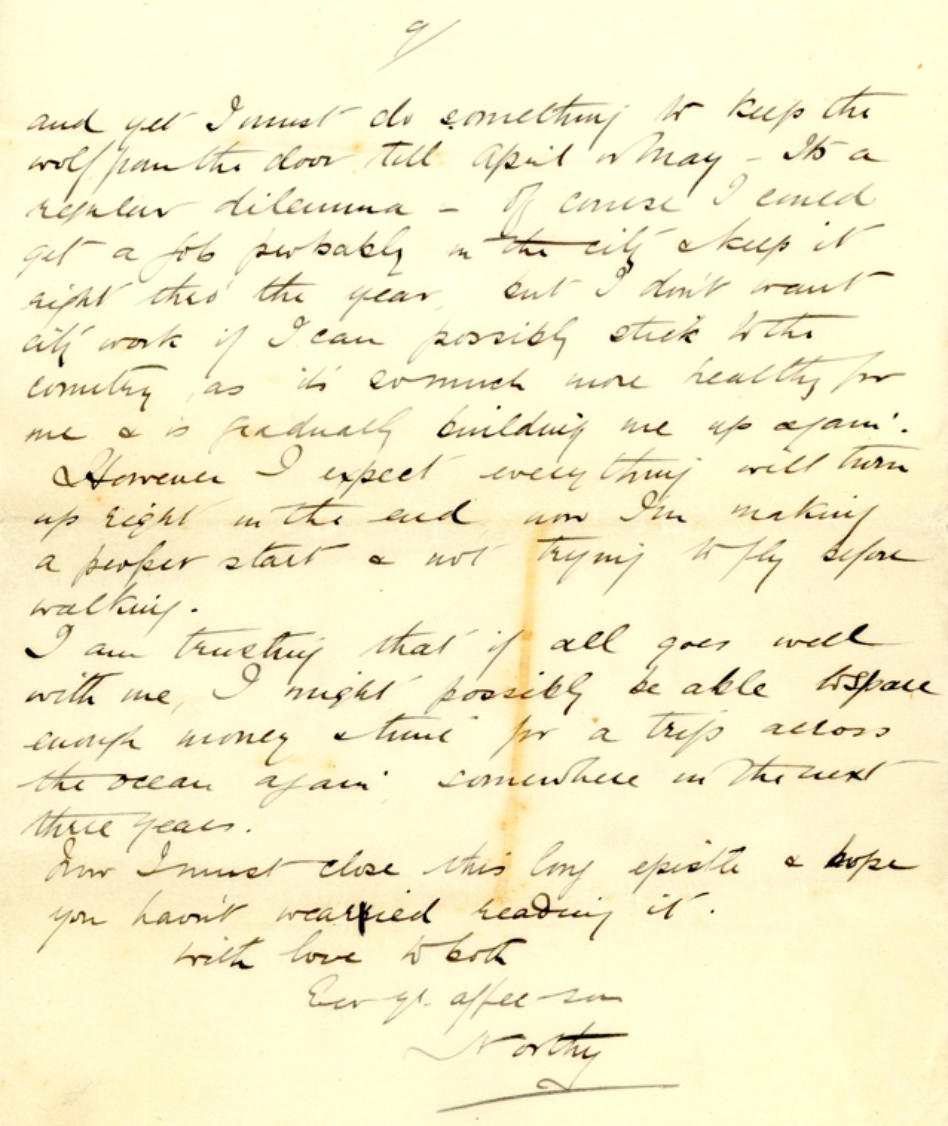 9/
and yet I must do something to keep the
wolf from the door till April or May - It's a
regular dilemma - Of course I could
get a job probably in the city & keep it
right thro' the year, but I don't want
city work if I can possibly stick to the
country, as it's so much more healthy for
me & is gradually building me up again.
However I expect everything will turn
up right in the end now I'm making
a proper start & not trying to fly before
walking.
I am trusting that if all goes well
with me, I might possibly be able to spare
enough money & time for a trip across
the ocean again somewhere in the next
three years.
Now I must close this long epistle & hope
you hav'nt wearied reading it.
With love to both
Ever yr. affec son
Northy